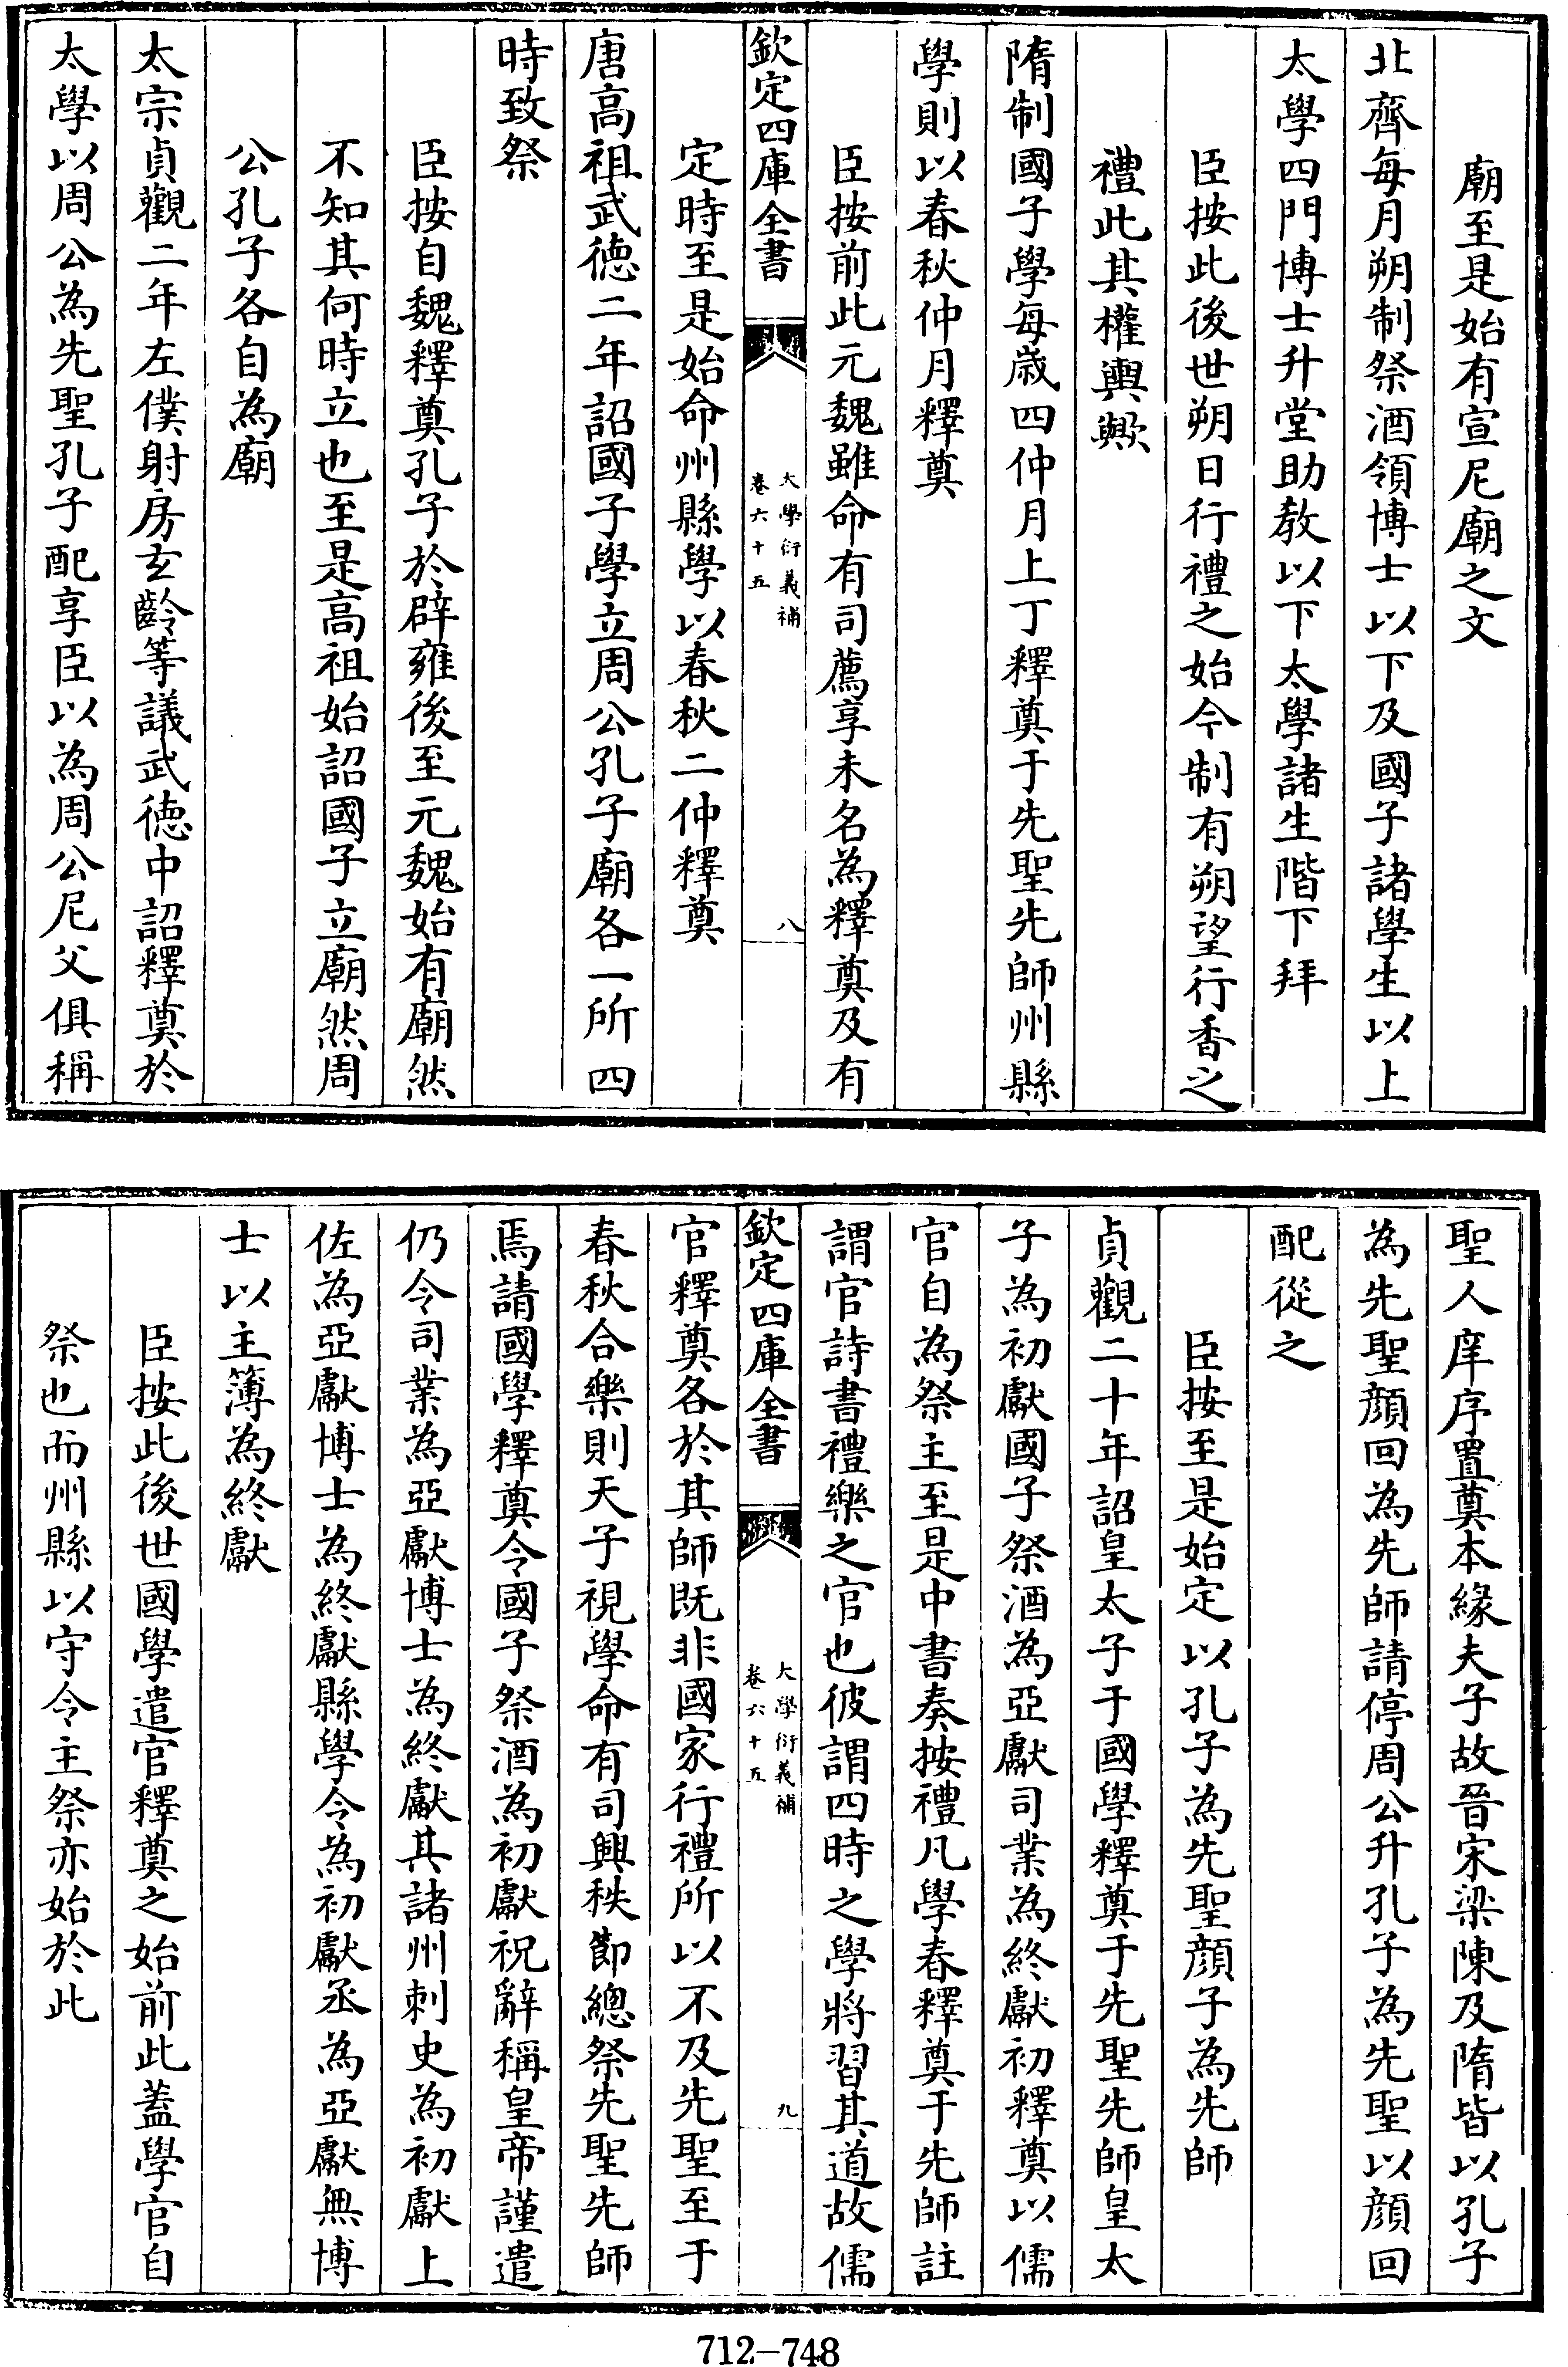 廟至是始有宣尼廟之文
北齊每月朔制祭酒領博士以下及國子諸學生以上
太學四門博士升堂助教以下太學諸生階下拜
臣按此後世朔日行禮之始今制有朔望行香之
禮此其權輿歟
隋制國子學每歳四仲月上丁釋奠于先聖先師州縣
學則以春秋仲月釋奠
臣按前此元魏雖命有司薦享未名為釋奠及有
欽定四庫全書
大學衍義補
卷六十五
八
定時至是始命州縣學以春秋二仲釋奠
唐高祖武徳二年詔國子學立周公孔子廟各一所四
時致祭
臣按自魏釋奠孔子於辟雍後至元魏始有廟然
不知其何時立也至是高祖始詔國子立廟然周
公孔子各自為廟
太宗貞觀二年左僕射房玄齡等議武徳中詔釋奠於
太學以周公為先聖孔子配享臣以為周公尼父俱稱
聖人庠序置奠本緣夫子故晉宋梁陳及隋皆以孔子
為先聖顔回為先師請停周公升孔子為先聖以顔回
配從之
臣按至是始定以孔子為先聖顔子為先師
貞觀二十年詔皇太子于國學釋奠于先聖先師皇太
子為初獻國子祭酒為亞獻司業為終獻初釋奠以儒
官自為祭主至是中書奏按禮凡學春釋奠于先師註
謂官詩書禮樂之官也彼謂四時之學將習其道故儒
欽定四庫全書
大學衍義補
卷六十五
九
官釋奠各於其師既非國家行禮所以不及先聖至于
春秋合樂則天子視學命有司興秩節總祭先聖先師
焉請國學釋奠令國子祭酒為初獻祝辭稱皇帝謹遣
仍令司業為亞獻博士為終獻其諸州刺史為初獻上
佐為亞獻博士為終獻縣學令為初獻丞為亞獻無博
士以主簿為終獻
臣按此後世國學遣官釋奠之始前此蓋學官自
祭也而州縣以守令主祭亦始於此
712-748